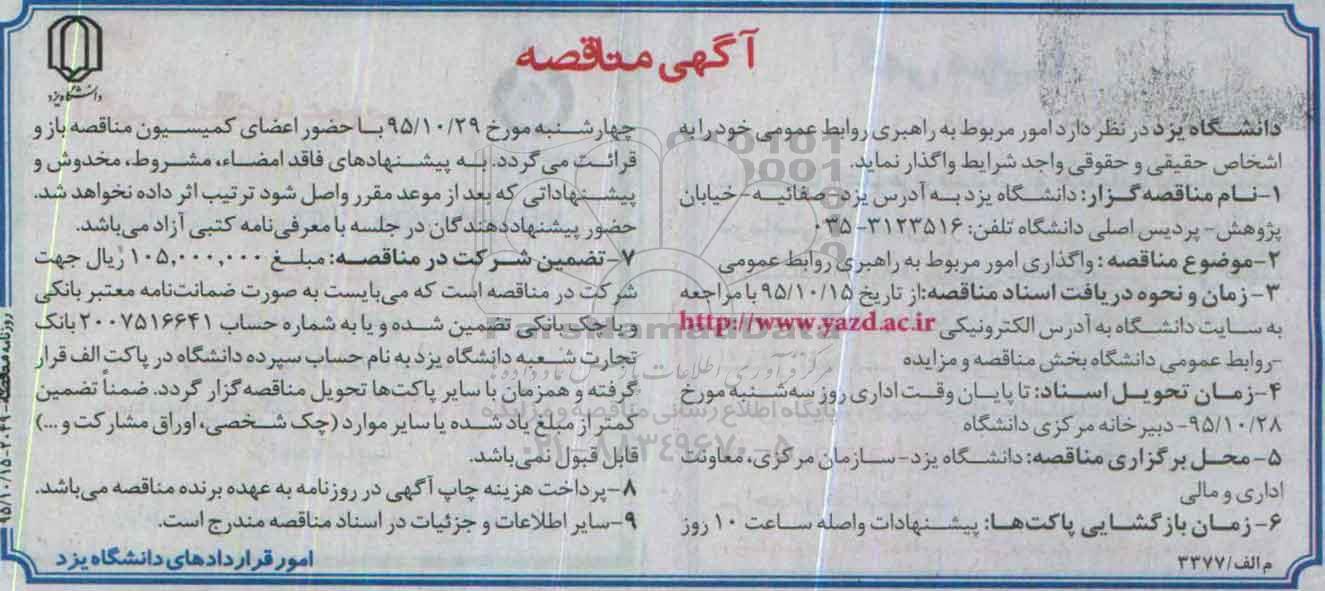 آگهی مناقصه
دانشگاه یزد
دانشگاه یزد در نظر دارد امور مربوط به راهبری روابط عمومی خود را به
اشخاص حقیقی و حقوقی واجد شرایط واگذار نماید.
۱-نام مناقصه گزار: دانشگاه یزد به آدرس یزد- صفائیه- خیابان
پژوهش- پردیس اصلی دانشگاه تلفن: ۳۱۲۳۵۱۶-۰۳۵
۲-موضوع مناقصه: واگذاری امور مربوط به راهبری روابط عمومی
۳-زمان و نحوه دریافت اسناد مناقصه:از تاریخ ۹۵/۱۰/۱۵ با مراجعه
به سایت دانشگاه به آدرس الکترونیکی http://www.yazd.ac.ir
-روابط عمومی دانشگاه بخش مناقصه و مزایده
۴-زمان تحویل اسناد: تا پایان وقت اداری روز سه‌شنبه مورخ
۹۵/۱۰/۲۸- دبیرخانه مرکزی دانشگاه
۵- محل برگزاری مناقصه: دانشگاه یزد- سازمان مرکزی، معاونت
اداری و مالی
۶- زمان بازگشایی پاکت‌ها: پیشنهادات واصله ساعت ۱۰ روز
چهارشنبه مورخ ۹۵/۱۰/۲۹ با حضور اعضای کمیسیون مناقصه باز و
قرائت می‌گردد. به پیشنهادهای فاقد امضاء، مشروط، مخدوش و
پیشنهاداتی که بعد از موعد مقرر واصل شود ترتیب اثر داده نخواهد شد.
حضور پیشنهاددهندگان در جلسه با معرفی‌نامه کتبی آزاد می‌باشد.
۷-تضمین شرکت در مناقصه: مبلغ ۱۰۵,۰۰۰,۰۰۰ ریال جهت
شرکت در مناقصه است که می‌بایست به صورت ضمانت‌نامه معتبر بانکی
و یا چک بانکی تضمین شده و یا به شماره حساب ۲۰۰۷۵۱۶۶۴۱ بانک
تجارت شعبه دانشگاه یزد به نام حساب سپرده دانشگاه در پاکت الف قرار
گرفته و همزمان با سایر پاکت‌ها تحویل مناقصه‌گزار گردد. ضمناً تضمین
کمتر از مبلغ یاد شده یا سایر موارد (چک شخصی، اوراق مشارکت و ...)
قابل قبول نمی‌باشد.
۸-پرداخت هزینه چاپ آگهی در روزنامه به عهده برنده مناقصه می‌باشد.
۹-سایر اطلاعات و جزئیات در اسناد مناقصه مندرج است.
م الف/۳۳۷۷
امور قراردادهای دانشگاه یزد
ParsNamadData
پایگاه اطلاع رسانی مناقصه و مزایده
۰۲۱-۸۸۳۴۹۶۷۰-۵